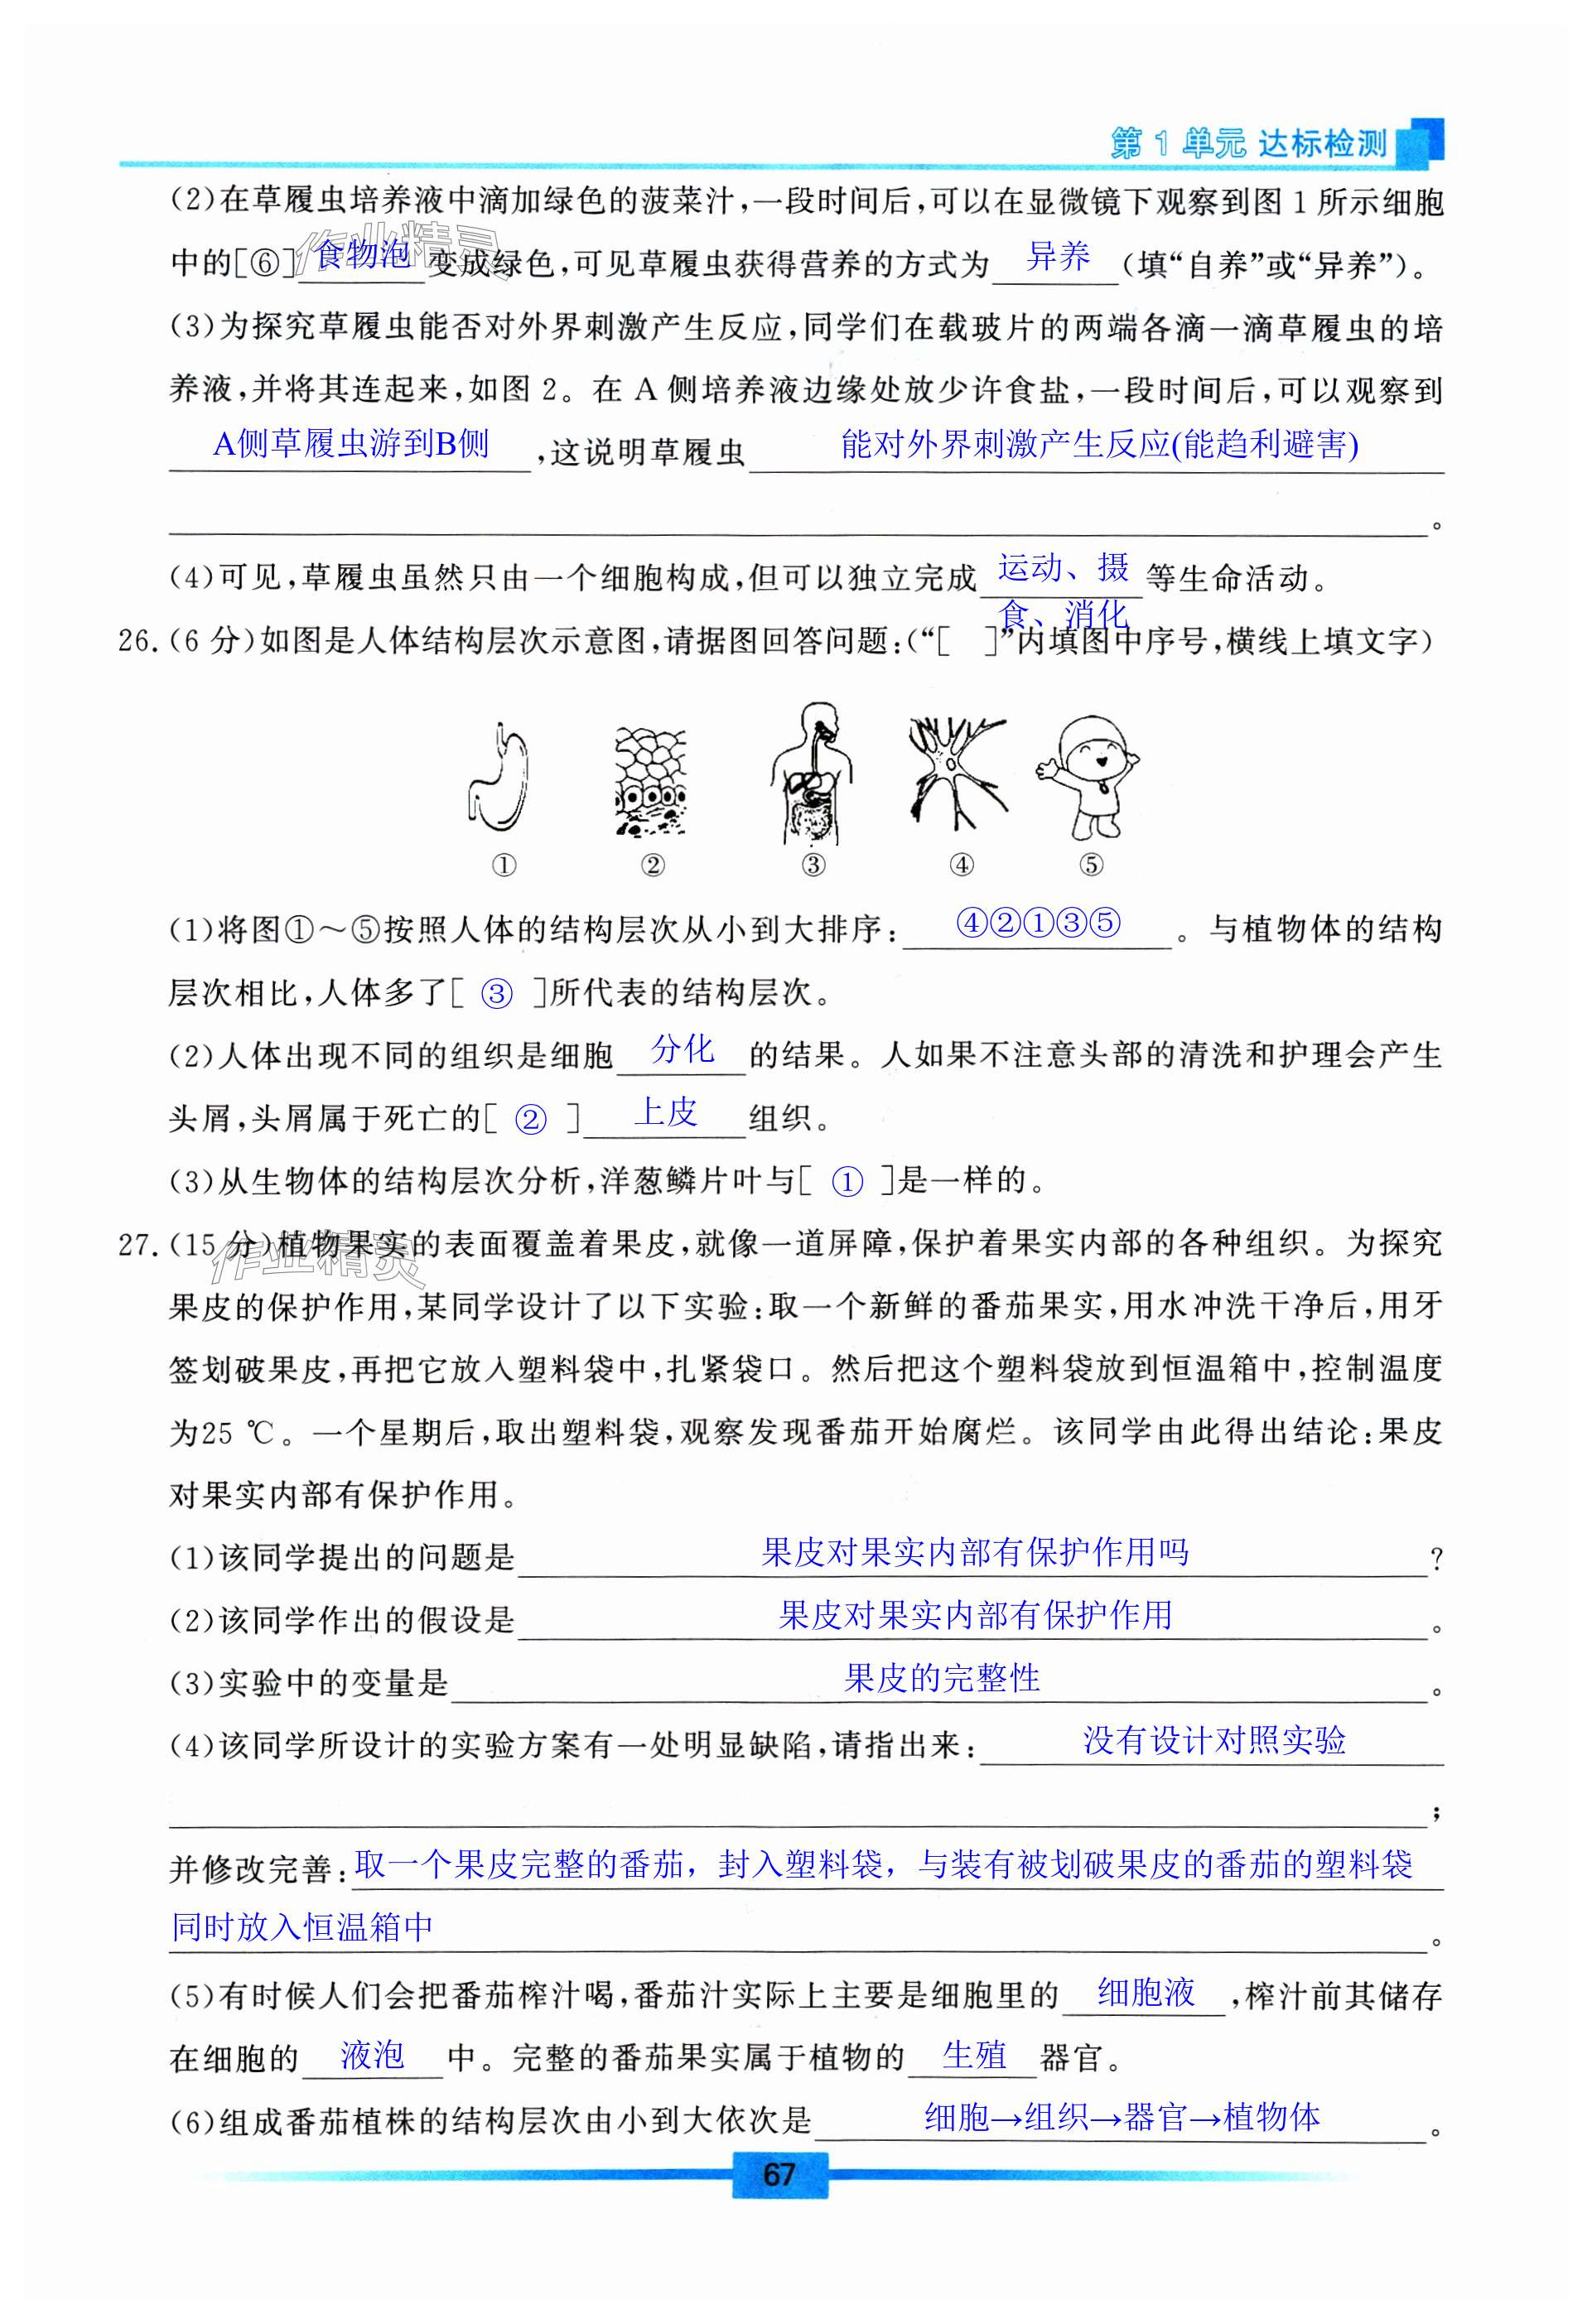 第1单元 达标检测
(2)在草履虫培养液中滴加绿色的菠菜汁,一段时间后,可以在显微镜下观察到图1所示细胞
中的[⑥]食物泡变成绿色,可见草履虫获得营养的方式为 异养 (填“自养”或“异养”)。
作业精灵
(3)为探究草履虫能否对外界刺激产生反应,同学们在载玻片的两端各滴一滴草履虫的培
养液,并将其连起来,如图2。在A侧培养液边缘处放少许食盐,一段时间后,可以观察到
A侧草履虫游到B侧,这说明草履虫 能对外界刺激产生反应(能趋利避害)
。
(4)可见,草履虫虽然只由一个细胞构成,但可以独立完成 运动、摄 等生命活动。
食、消化
26.(6分)如图是人体结构层次示意图,请据图回答问题:(“[ ]”内填图中序号,横线上填文字)
① ② ③ ④ ⑤
(1)将图①~⑤按照人体的结构层次从小到大排序: ④②①③⑤ 。与植物体的结构
层次相比,人体多了[ ③ ]所代表的结构层次。
(2)人体出现不同的组织是细胞 分化 的结果。人如果不注意头部的清洗和护理会产生
头屑,头屑属于死亡的[ ② ] 上皮 组织。
(3)从生物体的结构层次分析,洋葱鳞片叶与[ ① ]是一样的。
27.(15分)植物果实的表面覆盖着果皮,就像一道屏障,保护着果实内部的各种组织。为探究
作业精灵
果皮的保护作用,某同学设计了以下实验:取一个新鲜的番茄果实,用水冲洗干净后,用牙
签划破果皮,再把它放入塑料袋中,扎紧袋口。然后把这个塑料袋放到恒温箱中,控制温度
为25 ℃。一个星期后,取出塑料袋,观察发现番茄开始腐烂。该同学由此得出结论:果皮
对果实内部有保护作用。
(1)该同学提出的问题是 果皮对果实内部有保护作用吗 ?
(2)该同学作出的假设是 果皮对果实内部有保护作用 。
(3)实验中的变量是 果皮的完整性 。
(4)该同学所设计的实验方案有一处明显缺陷,请指出来: 没有设计对照实验
;
并修改完善:取一个果皮完整的番茄，封入塑料袋，与装有被划破果皮的番茄的塑料袋
同时放入恒温箱中 。
(5)有时候人们会把番茄榨汁喝,番茄汁实际上主要是细胞里的 细胞液 ,榨汁前其储存
在细胞的 液泡 中。完整的番茄果实属于植物的 生殖 器官。
(6)组成番茄植株的结构层次由小到大依次是 细胞→组织→器官→植物体 。
67